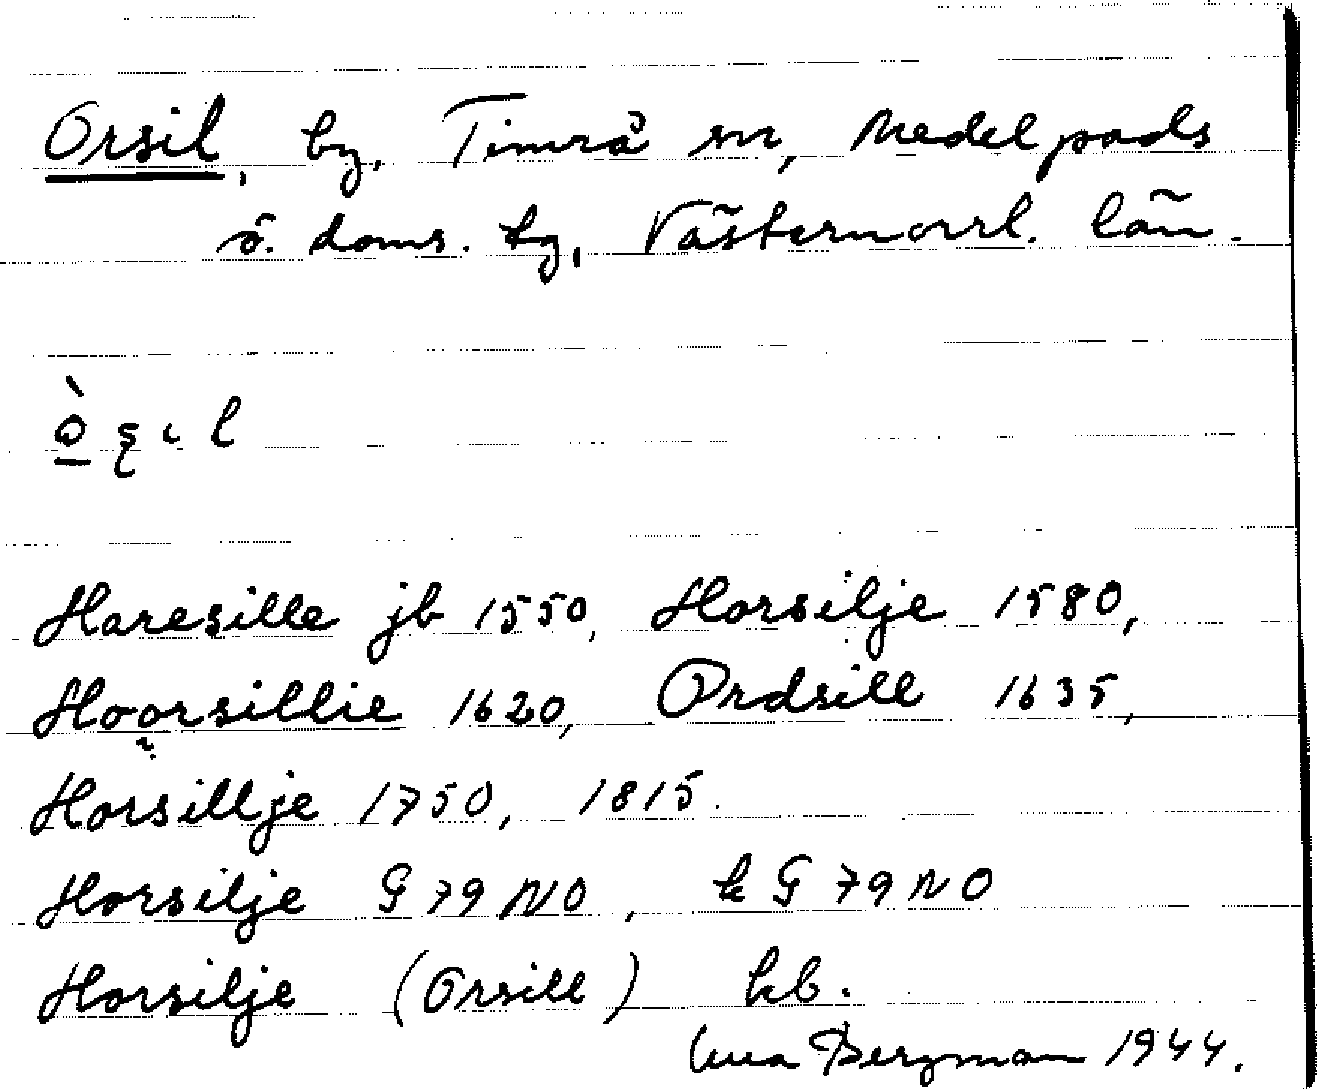 Orsil, by, Timrå sn, Medelpads
ö. doms. tg, Västernorrl. län.
Haresille jb 1550, Horsilje 1580,
Hoorsillie 1620, Ordsill 1635,
Horsillje 1750, 1815.
Horsilje G 79 NO, k G 79 NO
Horsilje (Orsill) kb.
Bergman 1944.